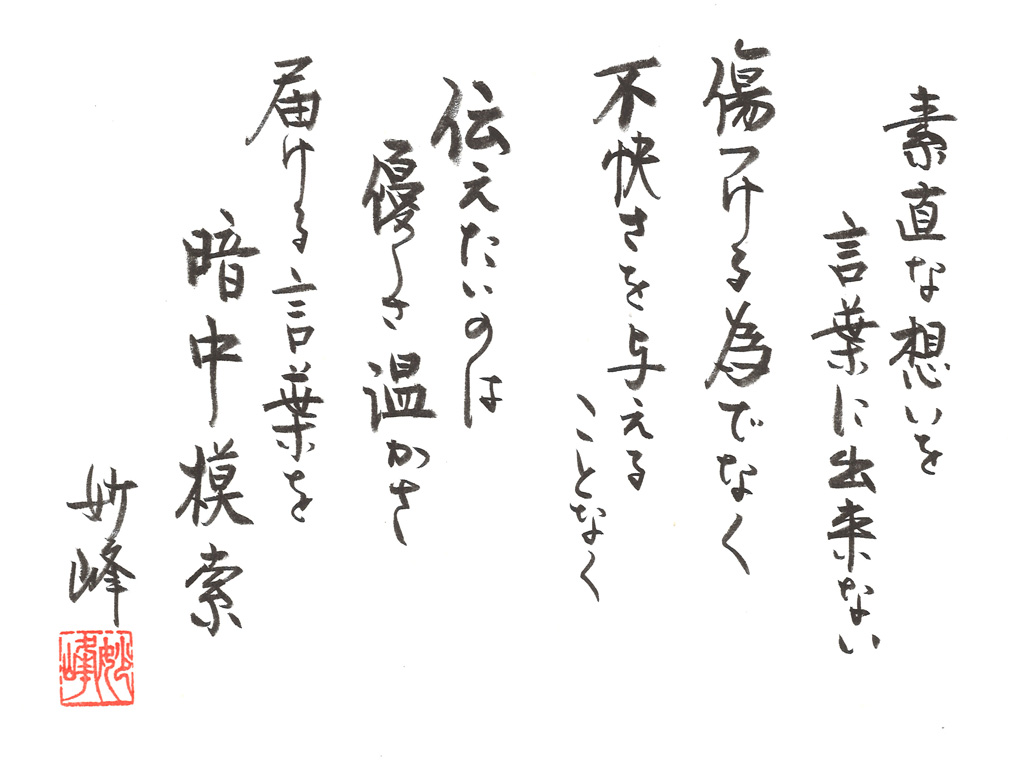 素直な想いを
言葉に出来ない
傷つける為でなく
不快さを与える
ことなく
伝えたいのは
優しさ温かさ
届ける言葉を
暗中模索
妙峰
妙峰